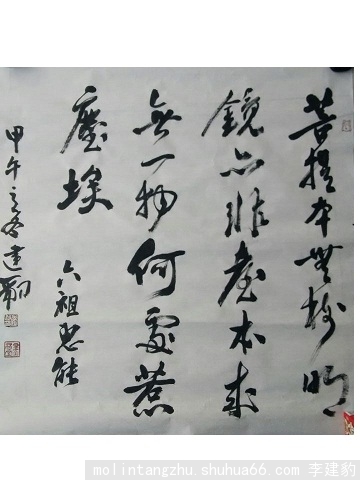 菩提本無樹明
鏡亦非臺本來
無一物何處惹
塵埃 六祖惠能
甲午之建豹
molintangzhu.shuhua66.com 李建豹